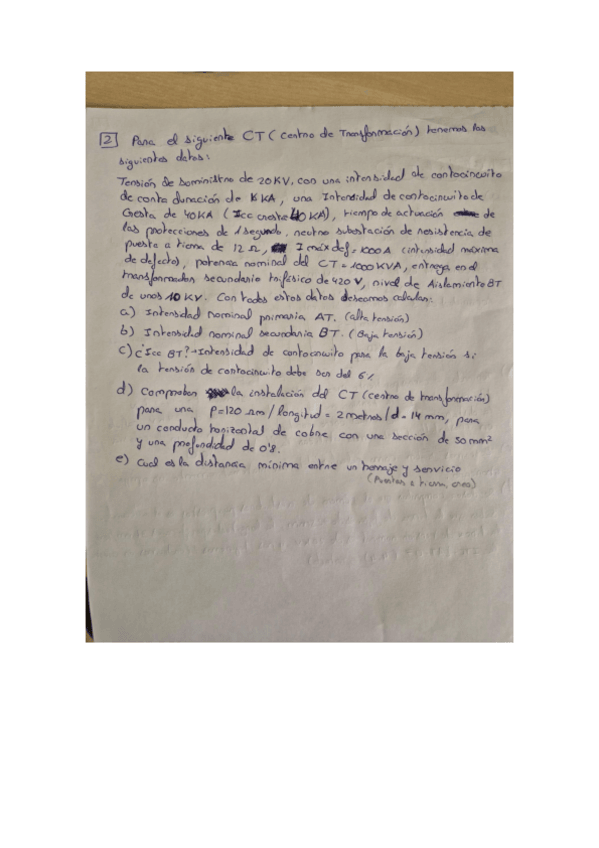 2 Para el siguiente CT (Centro de Transformación) tenemos los
siguientes datos:
Tensión de suministro de 20KV, con una intensidad de cortocircuito
de corta duración de KA, una Intensidad de cortocircuito de
Cresta de 40KA (Icc cresta 40 KA), tiempo de actuación de
las protecciones de 1 segundo, neutro subestación de resistencia de
puesta a tierra de 12 Ω, I max def = 1000 A (intensidad maxima
de defecto), potencia nominal del CT = 1000 KVA, entrega en el
transformador secundario trifásico de 420 V, nivel de Aislamiento BT
de unos 10 KV. Con todos estos datos deseamos calcular:
a) Intensidad nominal primaria AT. (alta tensión)
b) Intensidad nominal secundaria BT. (Baja tensión)
c) ¿Icc BT? → Intensidad de cortocircuito para la baja tensión si
la tensión de cortocircuito debe ser del 6%
d) Comprobar la instalación del CT (centro de transformación)
para una ρ=120 Ωm / longitud = 2 metros / d = 14 mm, para
un conducto horizontal de cobre con una sección de 50 mm²
y una profundidad de 0'8.
e) Cual es la distancia mínima entre un herraje y servicio
(Puestas a tierra creo)